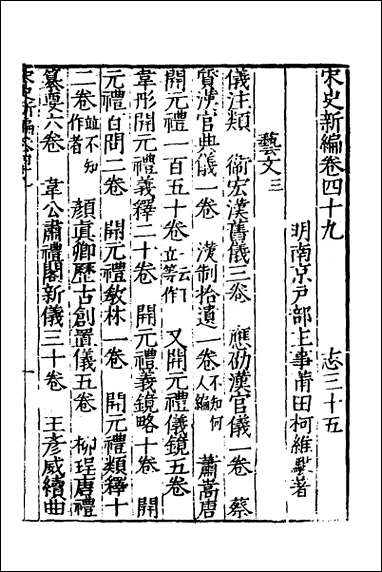 宋史新編卷四十九　志三十五
明南京戶部主事莆田柯維騏著
藝文三
儀注類　衛宏漢舊儀三卷　應劭漢官儀一卷　蔡
質漢官典儀一卷　漢制拾遺一卷不知何人編　蕭嵩唐
開元禮一百五十卷一云王立等作　又開元禮儀鏡五卷
韋彤開元禮義釋二十卷　開元禮義鏡略十卷　開
元禮百問二卷　開元禮教林一卷　開元禮類釋十
二卷並不知作者　顏真卿歷古創置儀五卷　柳珵唐禮
纂要六卷　韋公肅禮閣新儀三十卷　王彥威續曲
宋史新編卷四十九
一